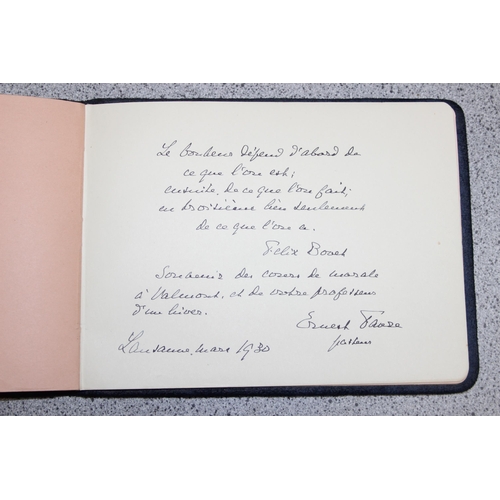 Le bonheur dépend d'abord de
ce que l'on est;
ensuite, de ce que l'on fait;
en troisième lieu seulement
de ce que l'on a.
Félix Bovet
Souvenir des cours de morale
à Valmont, et de votre professeur
d'un hiver.
Ernest Favre
pasteur
Lausanne, mars 1930